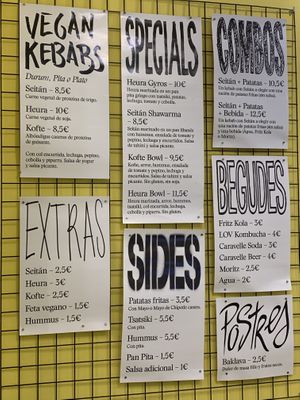 VEGAN
KEBABS
Durum, Pita o Plato
Seitán – 8,5€
Carne vegetal de proteína de trigo.
Heura – 10€
Carne vegetal de soja.
Kofte – 8,5€
Albóndigas caseras de proteína
de guisante.
Con col encurtida, lechuga, pepino,
cebolla y piparra. Salsa de yogur
y salsa picante.
EXTRAS
Seitán – 2,5€
Heura – 3€
Kofte – 2,5€
Feta vegano – 1,5€
Hummus – 1,5€
SPECIALS
Heura Gyros – 10€
Heura marinada en un pan
pita griego con tzatziki, patatas,
lechuga, tomate y cebolla.
Seitán Shawarma
– 8,5€
Seitán marinado en pan
con hummus, ensalada
de tomate y pepino, lechuga
y encurtidos. Salsa de tahini y salsa
picante.
Kofte Bowl – 9,5€
Kofte, arroz, hummus, ensalada
de tomate y pepino, lechuga
y encurtidos. Salsa de tahini y salsa
picante. Sin gluten.
Heura Bowl – 11,5€
Heura marinada, arroz, hummus,
tzatziki, col encurtida, lechuga,
cebolla y piparra. Sin gluten.
SIDES
Patatas fritas – 3,5€
Con Mayo o Mayo de Chipotle casera.
Tsatsiki – 5,5€
Con pita
Hummus – 5,5€
Con pita
Pan Pita – 1,5€
Salsa adicional – 1€
COMBOS
Seitán + Patatas
– 10,5€
Un kebab con Seitán a elegir con una
ración de patatas fritas
Seitán + Patatas
+ Bebida – 12,5€
Un kebab con Seitán a elegir con una
ración de patatas fritas
y una bebida (Agua, Fritz Kola
o Moritz).
BEGUDES
Fritz Kola – 3€
LOV Kombucha – 4€
Caravelle Soda – 3€
Caravelle Beer – 4€
Moritz – 2,5€
Agua – 2€
Postres
Baklava – 2,5€
Dulce de masa filo y frutos secos.